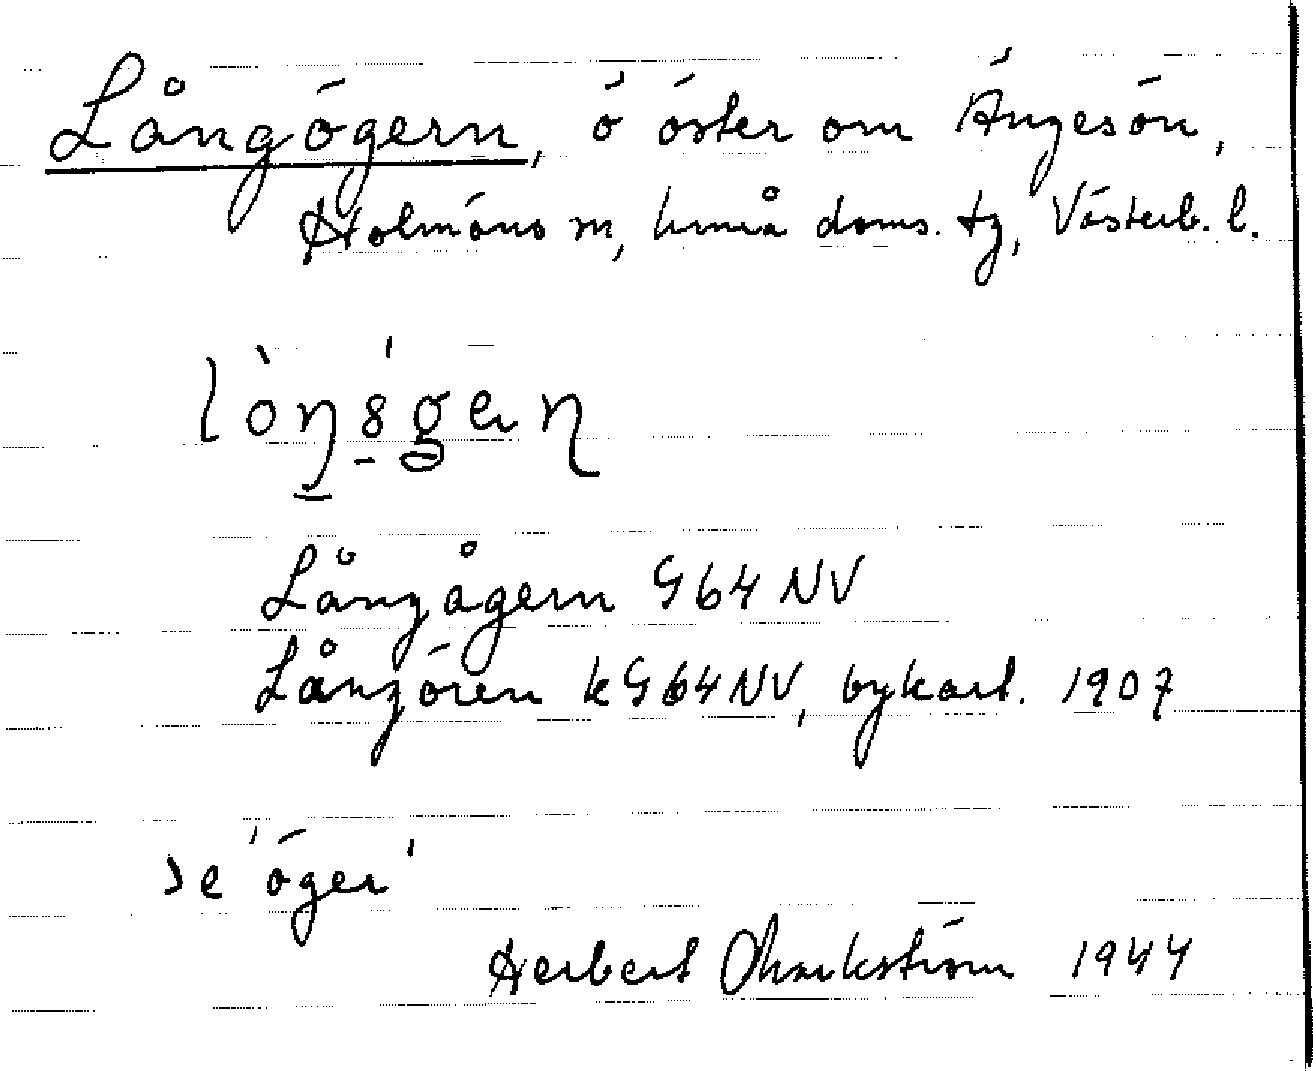 Långögern, ö öster om Ängesön,
Holmöns sn, Umeå doms. tg, Västerb. l.
Långågern G64 NV
Långören k G64 NV, bykart. 1907
se 'öger'
Herbert 1944